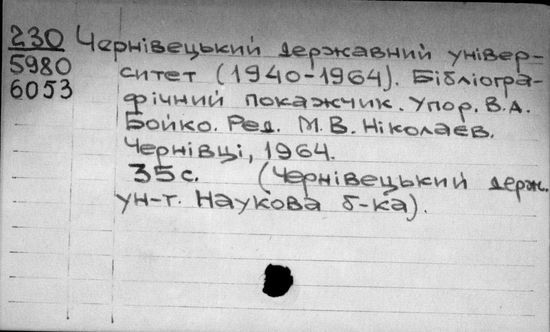 230 Чернівецький державний універ-
5980 ситет (1940-1964). Бібліогра-
6053 фічний покажчик. Упор. В.А.
Бойко. Ред. М.В. Ніколаєв.
Чернівці, 1964.
35 с. (Чернівецький держ.
ун-т. Наукова б-ка).